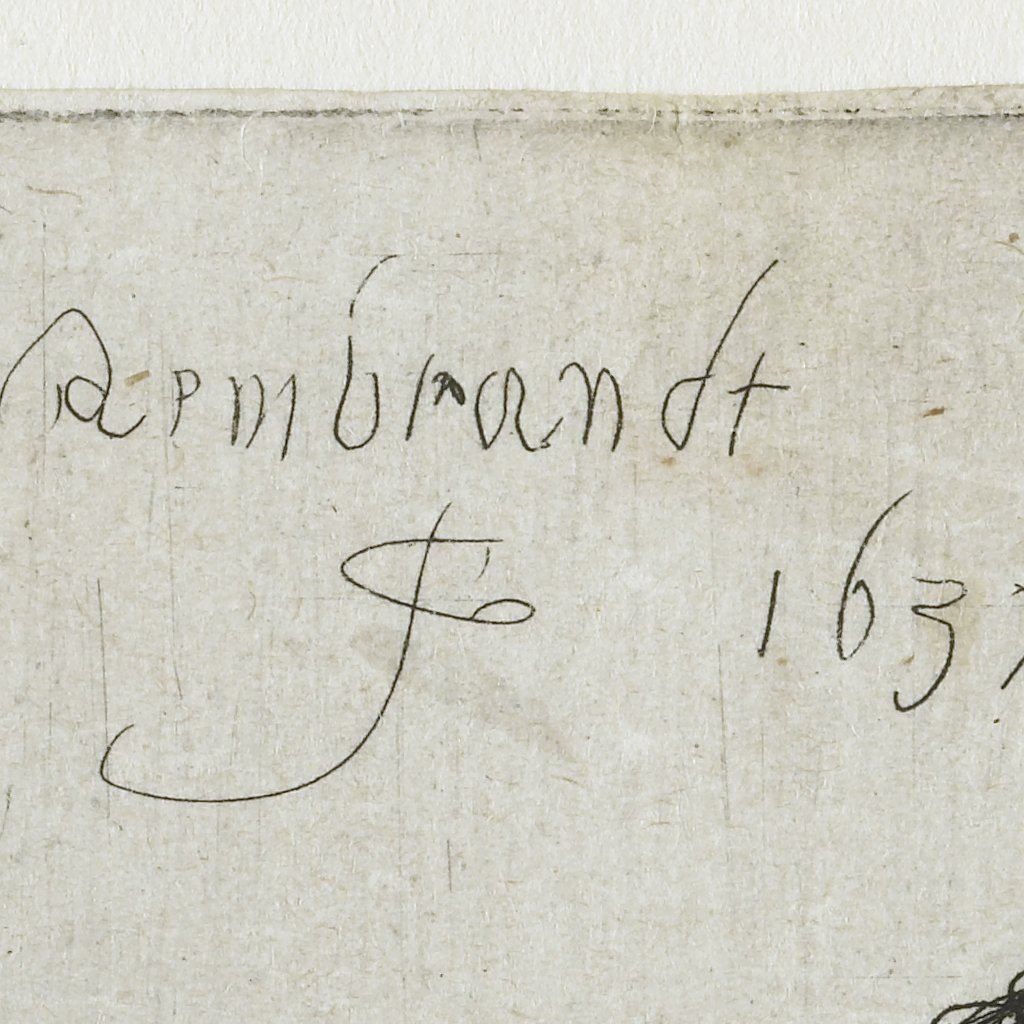 Rembrandt
f 1637